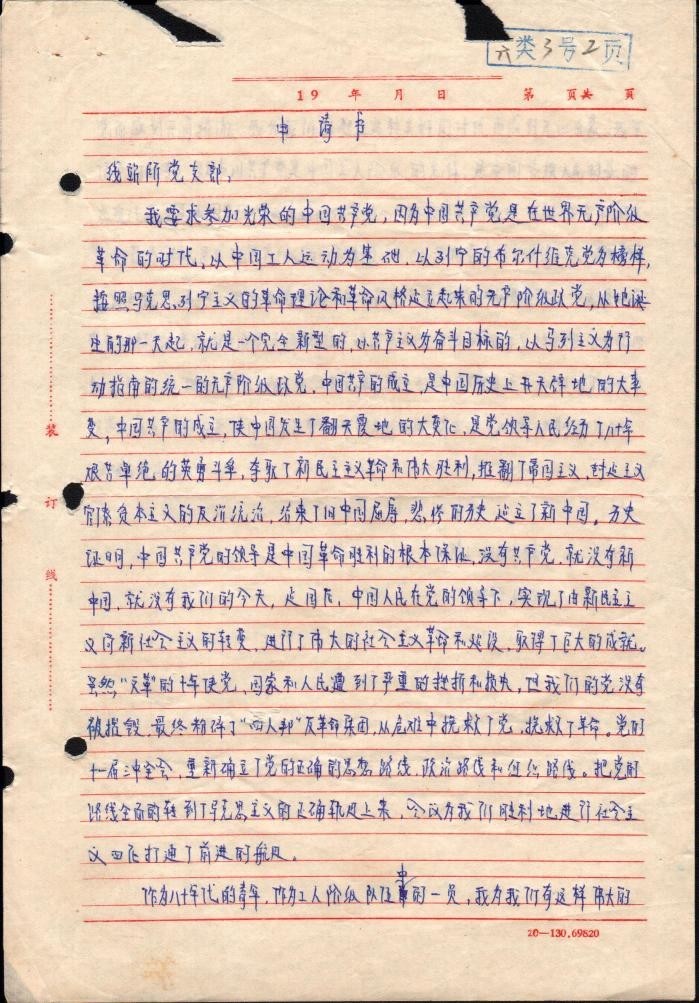 六类3号2页
19 年 月 日 第 页共 頁
申请书
我所党支部:
我要求参加光荣的中国共产党,因为中国共产党是在世界无产阶级
革命的时代,以中国工人运动为基础,以列宁的布尔什维克党为榜样,
按照马克思、列宁主义的革命理论和革命风格建立起来的无产阶级政党,从她诞
生的那一天起,就是一个完全新型的,以共产主义为奋斗目标的,以马列主义为行
动指南的统一的无产阶级政党。中国共产的成立,是中国历史上开天辟地的大事
变,中国共产的成立,使中国发生了翻天覆地的大变化,是党领导人民经历了几十年
艰苦卓绝的英勇斗争,夺取了新民主主义革命和伟大胜利,推翻了帝国主义,封建主义
官僚资本主义的反动统治,结束了旧中国屈辱,悲惨的历史建立了新中国。历史
证明,中国共产党的领导是中国革命胜利的根本保证,没有共产党,就没有新
中国,就没有我们的今天,建国后,中国人民在党的领导下,实现了由新民主主
义向新社会主义的转变,进行了伟大的社会主义革命和建设,取得了巨大的成就。
虽然“文革”的十年使党,国家和人民遭到了严重的挫折和损失,但我们的党没有
被摧毁,最终粉碎了“四人邦”反革命集团,从危难中挽救了党,挽救了革命。党的
十一届三中全会,重新确立了党的正确的思想路线,政治路线和组织路线。把党的
路线全面的转到了马克思主义的正确轨道上来,会议为我们胜利地进行社会主
义四化打通了前进的航道。
作为八十年代的青年,作为工人阶级队伍中的一员,我为我们有这样伟大的
装
订
线
20—130.69820